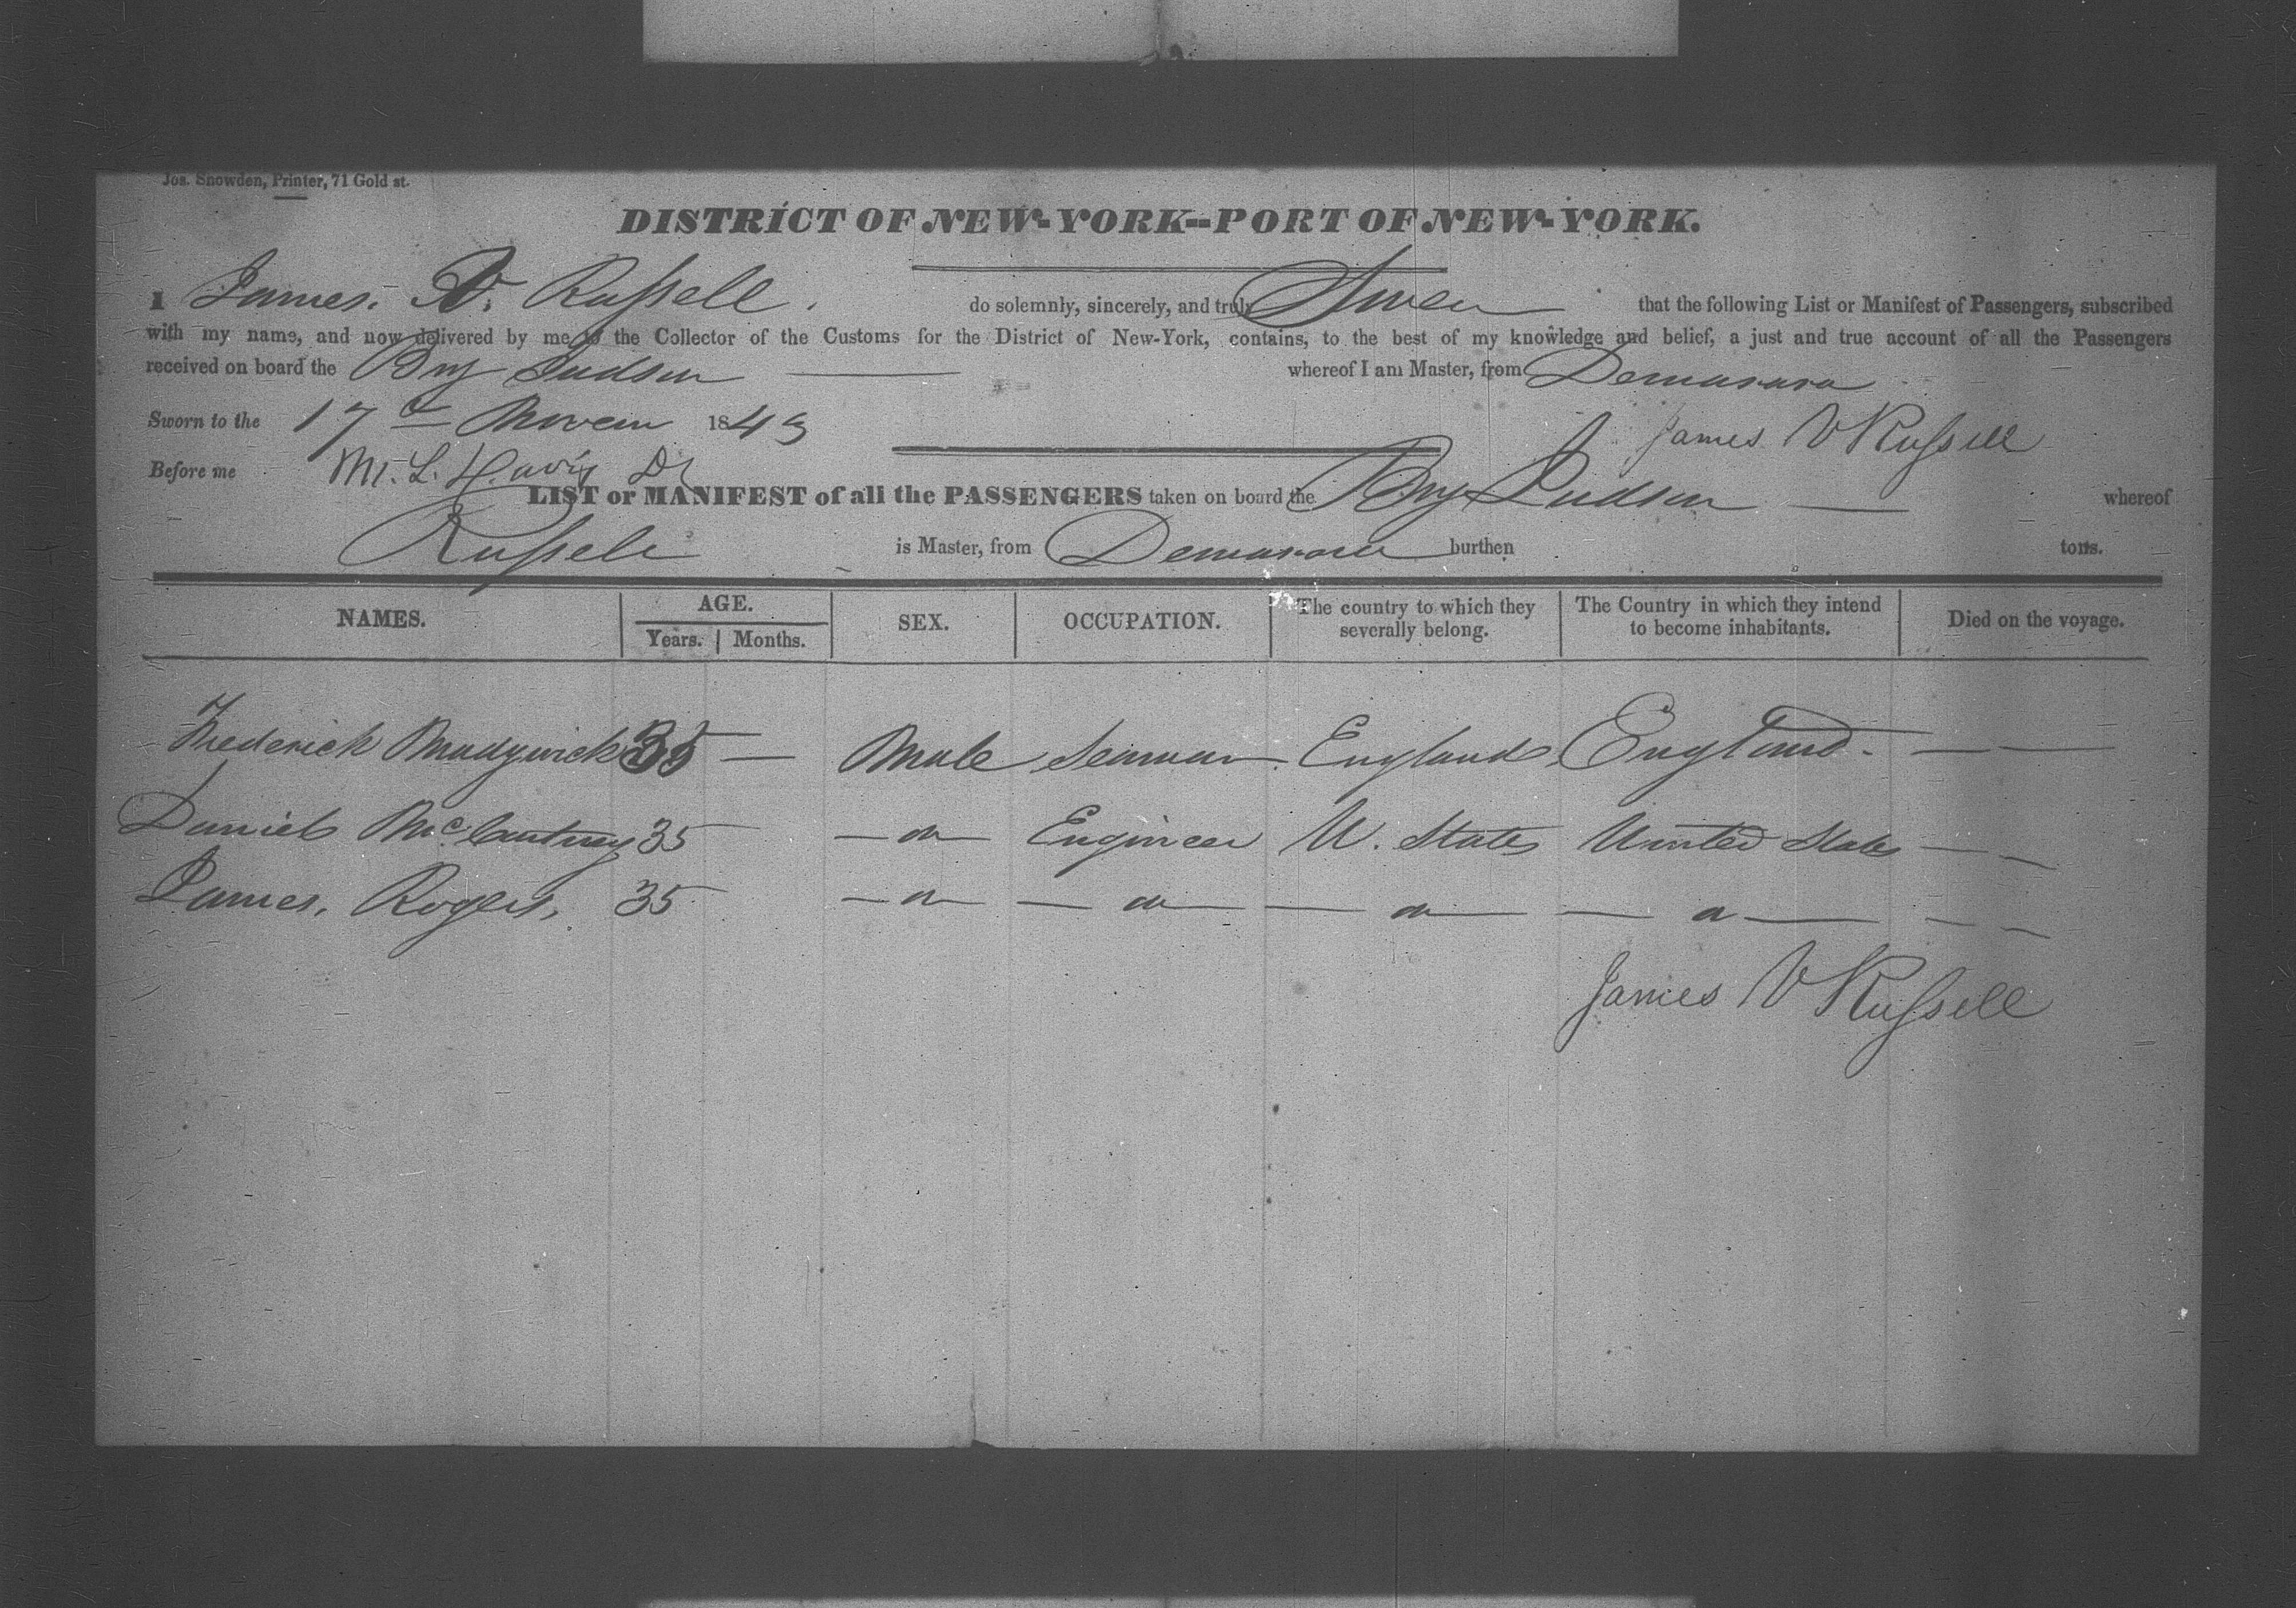 Jos. Snowden, Printer, 71 Gold st.
DISTRICT OF NEW-YORK--PORT OF NEW-YORK.
I James. V. Russell. do solemnly, sincerely, and truly Swear that the following List or Manifest of Passengers, subscribed
with my name, and now delivered by me to the Collector of the Customs for the District of New-York, contains, to the best of my knowledge and belief, a just and true account of all the Passengers
received on board the Brig Judson whereof I am Master, from Demarara
Sworn to the 17th Novem 1843 James V Russell
Before me M. L. Davis
LIST or MANIFEST of all the PASSENGERS taken on board the Brig Judson whereof
Russell is Master, from Demarara burthen tons.
NAMES. AGE. Years. Months. SEX. OCCUPATION. The country to which they severally belong. The Country in which they intend to become inhabitants. Died on the voyage.
Frederick Madgwick 35 — Male Seaman England England — —
Daniel McCartney 35 — do — Engineer U. States United States — —
James, Rogers, 35 — do — — do — — do — — do — — —
James V Russell